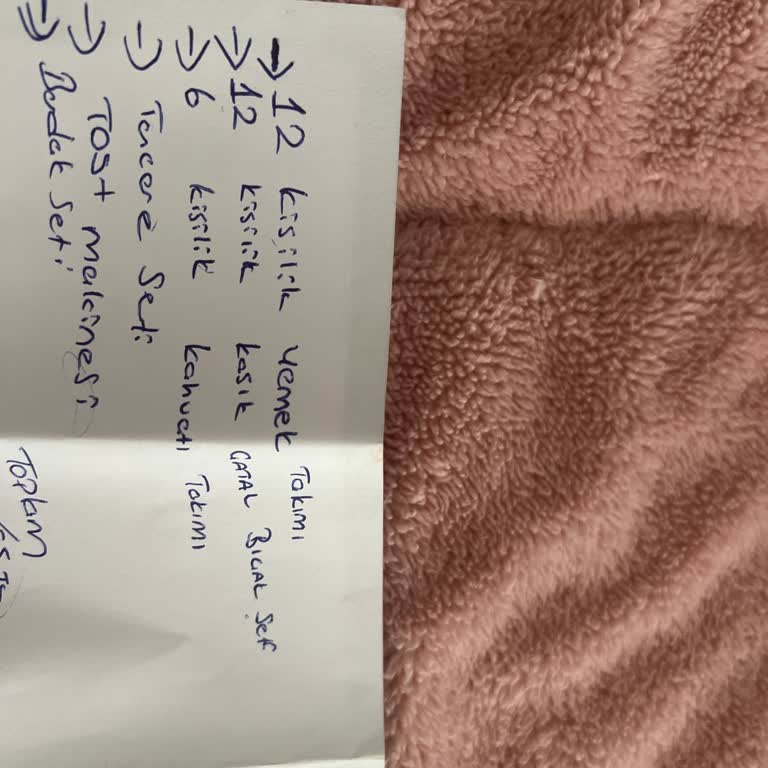 → 12 kişilik yemek Takımı
→ 12 kişilik kaşık ÇATAL BIÇAK Seti
→ 6 kişilik kahvaltı Takımı
→ Tencere Seti
→ Tost makinesi
→ Bardak Seti
Toplam